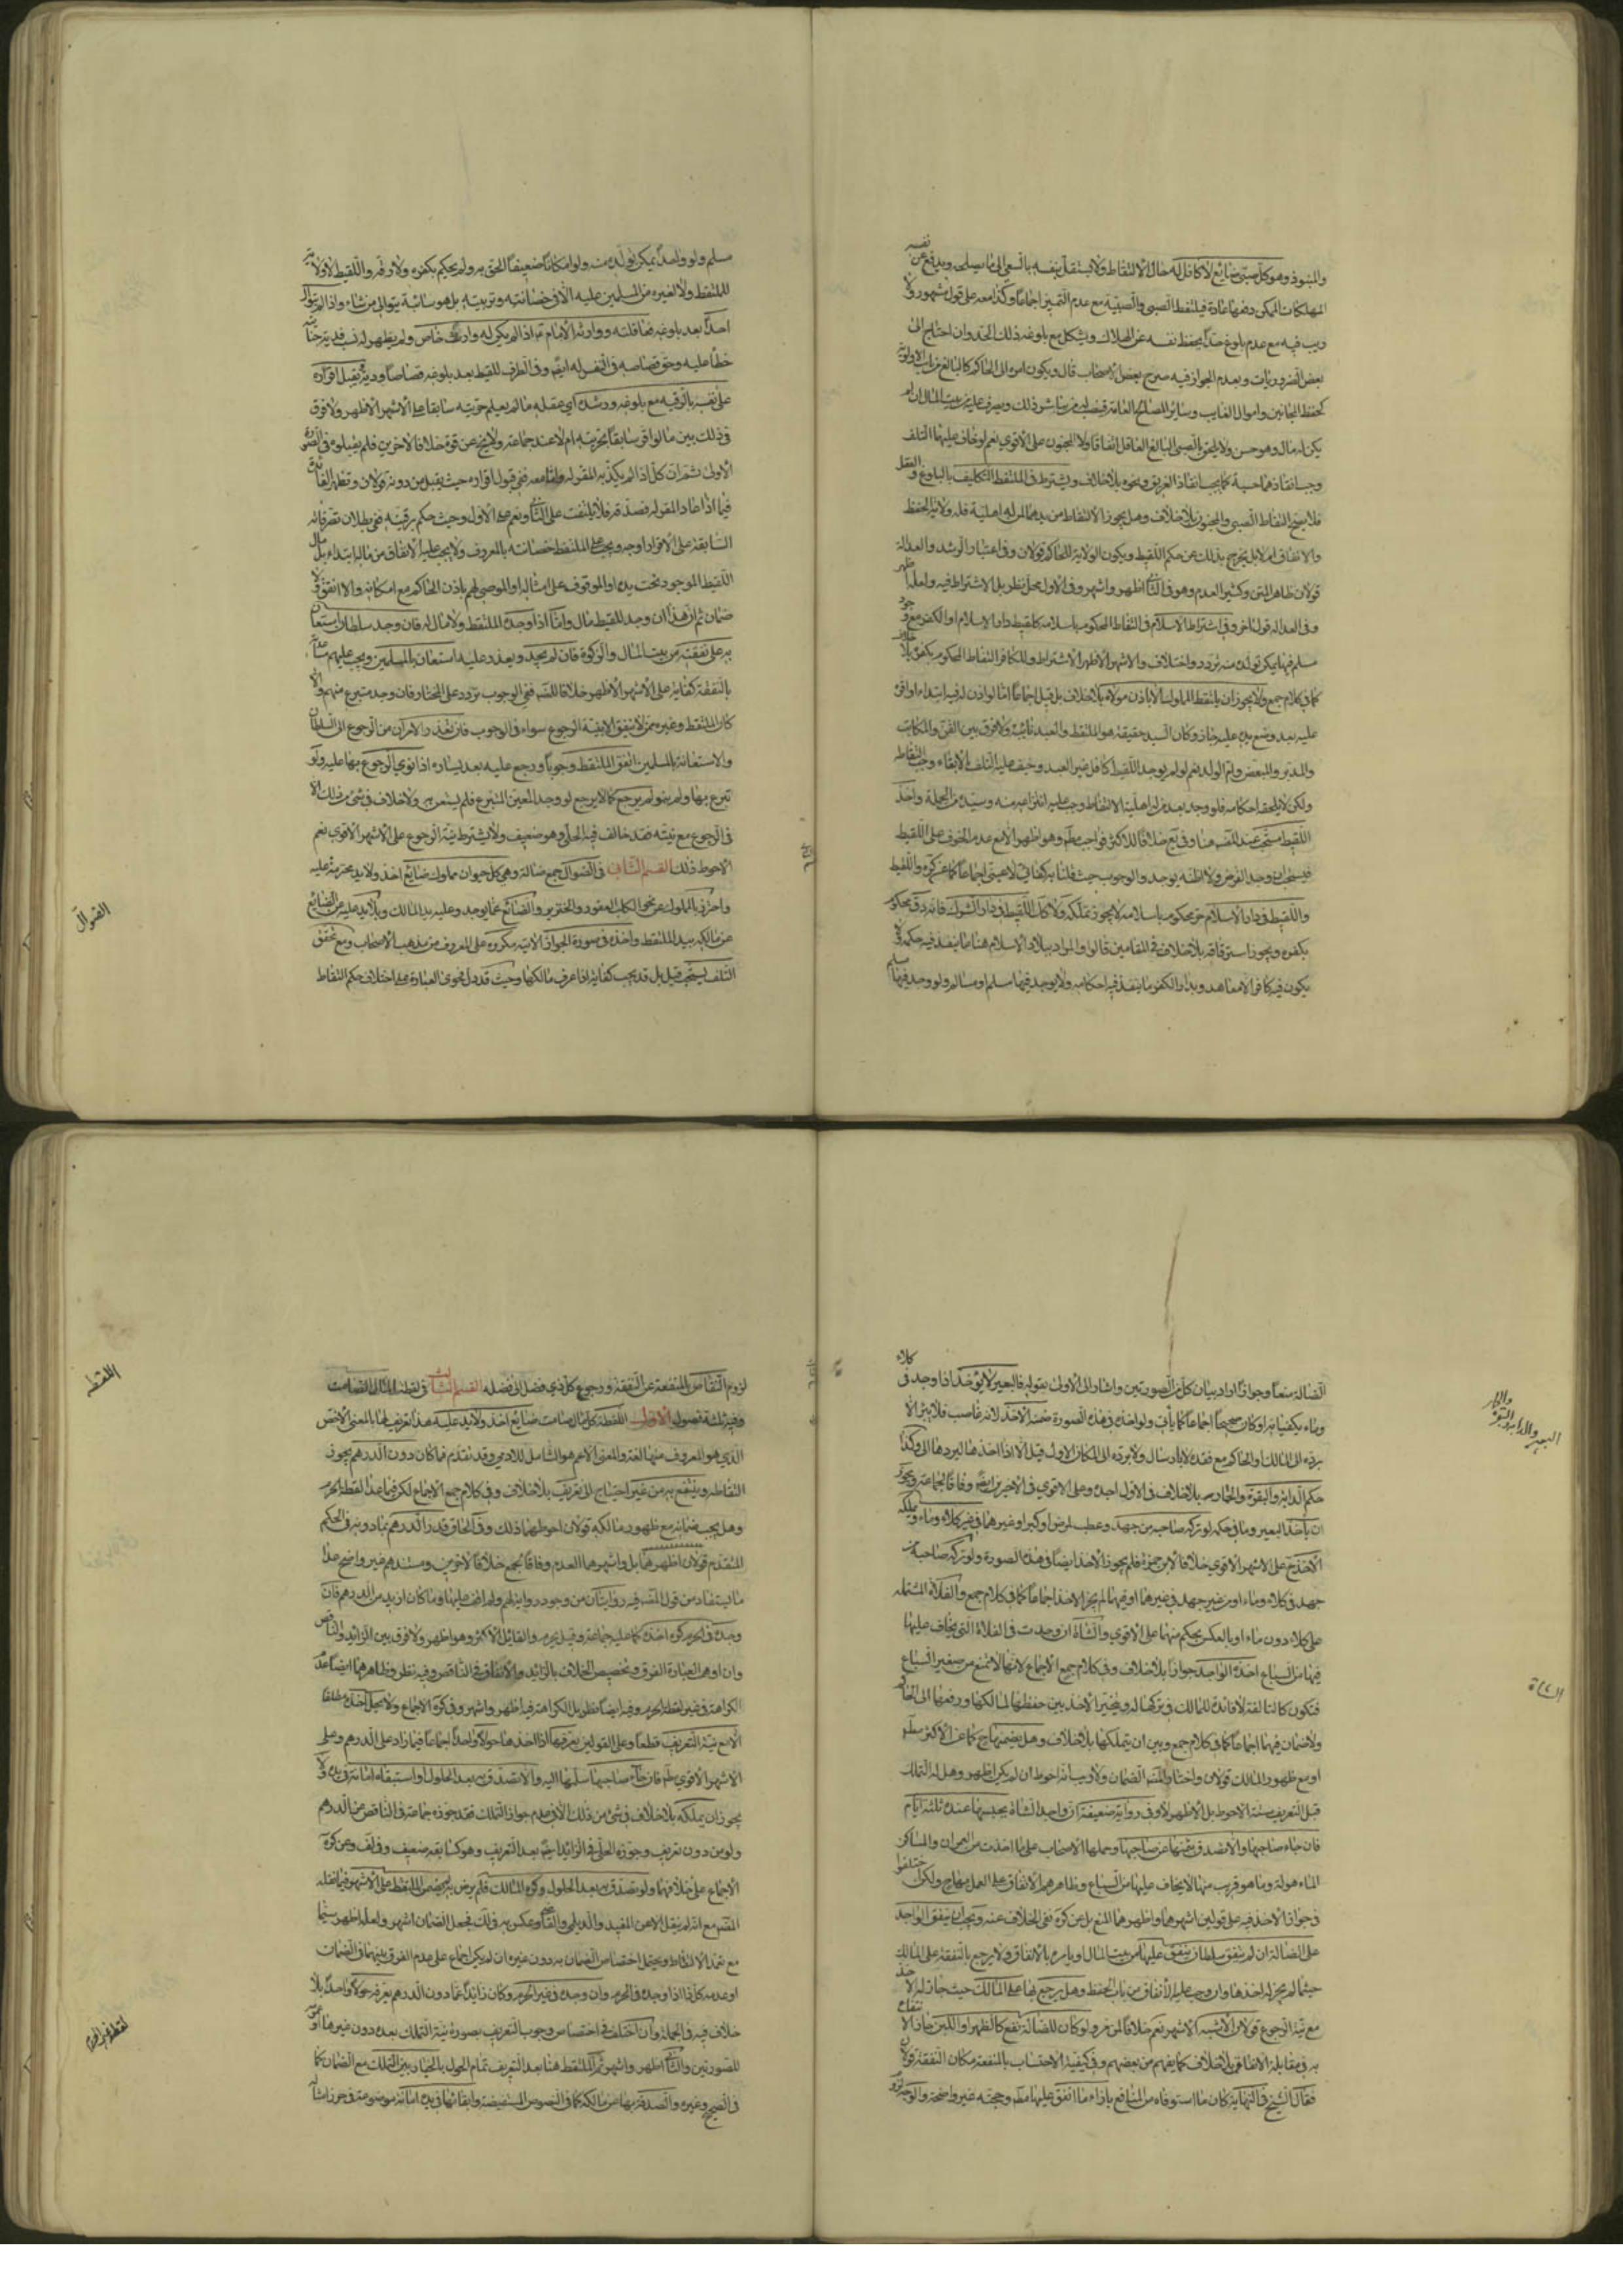 والمنبوذ وهو كل صبي ضائع لا كافل له حال الالتقاط ولا يستقل بنفسه بالسعي الى ما يصلحه ويدفع عن نفسه
المهلكات الممكن دفعها عادة فيلتقط الصبي والصبية مع عدم التميز اجماعا وكذا معه على قول مشهور ولا
ريب فيه مع عدم بلوغه حدا يحفظ نفسه عن الهلاك ويشكل مع بلوغه ذلك الحد وان احتاج الى
بعض الضروريات وبعدم الجواز فيه صرح بعض الاصحاب قال ويكون امره الى الحاكم كالبالغ
كحفظ المجانين واموال الغايب وسائر المصالح العامة ذلك ويصرف عليه من بيت المال ان لم
يكن له مال وهو حسن ولا يلحق بالصبي البالغ العاقل اتفاقا ولا المجنون على الاقوى نعم لو خاف عليهما التلف
وجب انقاذهما حسبة كما يجب انقاذ الغريق ونحوه بلا خلاف ويشترط في الملتقط التكليف بالبلوغ والعقل
فلا يصح التقاط الصبي والمجنون بلا خلاف وهل يجوز الالتقاط من يدهما لمن له اهلية
والانفاق ام لا بل يخرج بذلك عن حكم اللقيط ويكون الولاية للحاكم قولان وفي اعتبار الرشد والعدالة
قولان ظاهر المتن وكثير العدم وهو في الثاني اظهر واشهر وفي الاول محل نظر بل الاشتراط فيه
وفي العدالة قول اخر وفي اشتراط الاسلام في التقاط المحكوم باسلامه كلقيط دار الاسلام او الكفر مع وجود
مسلم فيها يمكن تولده منه تردد واختلاف والاشهر الاظهر الاشتراط وللكافر التقاط المحكوم بكفره بلا خلاف
كما في كلام جمع ولا يجوز ان يلتقط المملوك الا باذن مولاه بلا خلاف بل قيل اجماعا اما لو اذن له فيه ابتداء او اقره
عليه بعد وضع يده عليه جاز وكان السيد حقيقة هو الملتقط والعبد نائبه ولا فرق بين القن والمكاتب
والمدبر والمبعض وام الولد نعم لو لم يوجد اللقيط كافل غير العبد وخيف عليه التلف بالابقاء وجب التقاطه
ولكن لا يلحقه احكامه فلو وجد بعد من له اهلية الالتقاط وجب عليه انتزاعه منه وسيده من الجملة واخذ
اللقيط مستحب عند المصنف هنا وفي يع خلافا للاكثر فواجب مطلقا وهو اظهر الا مع عدم الخوف على اللقيط
واللقيط في دار الاسلام حر محكوم باسلامه لا يجوز تملكه ولا كذلك اللقيط في دار الشرك فانه رق محكوم
بكفره ويجوز استرقاقه بلا خلاف في المقامين قالوا والمراد ببلاد الاسلام هنا ما ينفذ فيه حكمه فلا
يكون فيه كافر الا معاهد وبدار الكفر ما ينفذ فيه احكامه ولا يوجد فيها مسلم او مسالم ولو وجد فيها مسلم
مسلم ولو واحدا يمكن تولده منه ولو امكانا ضعيفا الحق به ولم يحكم بكفره ولا رقه واللقيط لا ولاية
للملتقط ولا لغيره من المسلمين عليه الا في حضانته وتربيته بل هو سائبة يتوالى من شاء واذا لم يتوال
احدا بعد بلوغه فعاقلته ووارثه الامام ع اذا لم يكن له وارث خاص ولم يظهر له نسب فدية جنايته
خطأ عليه وحق قصاصه في النفس له ايضا وفي الطرف للقيط بعد بلوغه قصاصا ودية ويقبل اقراره
على نفسه بالرقية مع بلوغه ورشده اي عقله ما لم يعلم حريته سابقا على الاشهر الاظهر ولا فرق
في ذلك بين ما لو اقر سابقا بحريته ام لا عند جماعة ولا يخ عن قوة خلافا لاخرين فلم يقبلوه في الصورة
فيما اذا عاد المقر له فصدقه فلا يلتفت على الثاني ونعم على الاول وحيث حكم برقيته ففي بطلان تصرفاته
السابقة على الاقرار اوجه ويجب على الملتقط حضانته بالمعروف ولا يجب عليه الانفاق من ماله ابتداء بل
اللقيط الموجود تحت يده او الموقوف على امثاله او الموصى لهم باذن الحاكم مع امكانه والا انفق ولا
ضمان ثم ان هذا ان وجد للقيط مال واما اذا وجده الملتقط ولا مال له فان وجد سلطان استعان
به على نفقته من بيت المال والزكوة فان لم يجد وتعذر عليه استعان بالمسلمين ويجب عليهم
بالنفقة كفاية على الاشهر الاظهر خلافا للمصنف ففي الوجوب تردد على المختار فان وجد متبرع منهم والا
كان الملتقط وغيره ممن لا ينفق الا بنية الرجوع سواء في الوجوب فان تعذر الامران من الرجوع الى السلطان
والاستعانة بالمسلمين انفق الملتقط وجوبا ورجع عليه بعد يساره اذا نوى الرجوع بها عليه ولو
تبرع بها ولم ينو لم يرجع كما لا يرجع لو وجد المعين المتبرع فلم يستعن به ولا خلاف في شيء من ذلك الا
في الرجوع مع نيته فقد خالف فيه الحلي وهو ضعيف ولا يشترط نية الرجوع على الاشهر الاقوى نعم
الاحوط ذلك القسم الثاني في الضوال جمع ضالة وهي كل حيوان مملوك ضائع اخذ ولا يد محترمة عليه
واحترز بالمملوك عن نحو الكلب العقور والخنزير والضائع عما يوجد وعليه يد المالك وبلا يد عليه عن الضائع
عن مالكه بيد الملتقط واخذه في صورة الجواز الاتية مكروه على المعروف من مذهب الاصحاب ومع تحقق
التلف يستحب قيل بل قد يجب كفاية اذا عرف مالكها وحيث قد دل فحوى العبارة على اختلاف حكم التقاط
الضوال
الضالة منعا وجوازا اراد بيان كل من الصورتين واشار الى الاولى بقوله فالبعير لا يؤخذ اذا وجد في كلاء
وماء يكفيانه او كان صحيحا اجماعا كما يأتي ولو اخذه في هذه الصورة ضمنه الاخذ لانه غاصب فلا يبرأ الا
برده الى المالك او الحاكم مع فقده لا بارساله ولا برده الى المكان الاول قيل الا اذا اخذها ليردها الى وكذا
حكم الدابة والبقرة والحمار بلا خلاف في الاول اجده وعلى الاقوى في الاخيرين ايضا وفاقا لجماعة ويجوز
ان يأخذ البعير وما في حكمه لو تركه صاحبه من جهد وعطب لمرض او كبر او غيرهما في غير كلاء وماء ويملكه
الاخذ ح على الاشهر الاقوى خلافا لابن حمزة فلم يجوز الاخذ ايضا في هذه الصورة ولو تركه صاحبه من
جهد في كلاء وماء او من غير جهد في غيرهما او فيهما لم يجز الاخذ اجماعا كما في كلام جمع والفلاة المشتملة
على كلاء دون ماء او بالعكس بحكم منهما على الاقوى والشاة ان وجدت في الفلاة التي يخاف عليها
فيها من السباع اخذه الواجد جوازا بلا خلاف وفي كلام جمع الاجماع لانها لا تمتنع من صغير السباع
فتكون كالتالفة لا فائدة للمالك في تركها له ويتخير الاخذ بين حفظها لمالكها او دفعها الى الحاكم
ولا ضمان فيهما اجماعا كما في كلام جمع وبين ان يتملكها بلا خلاف وهل يضمنها ح كما عن الاكثر مطلقا
او مع ظهور المالك قولان واختار المصنف الضمان ولا ريب انه احوط ان لم يكن اظهر وهل له التملك
قبل التعريف سنة الاحوط بل الاظهر لا وفي رواية ضعيفة ان واجد الشاة يحبسها عنده ثلثة ايام
فان جاء صاحبها والا تصدق بثمنها عن صاحبها وحملها الاصحاب على ما اخذت من العمران والمساكن
الماهولة وما هو قريب منها لا يخاف عليها من السباع وظاهرهم الاتفاق على العمل بها ح ولكن اختلفوا
في جواز الاخذ فيه على قولين اشهرهما واظهرهما المنع بل عن كرة نفي الخلاف عنه ويجب ان ينفق الواجد
على الضالة ان لم يتفق سلطان ينفق عليها من بيت المال او يامره بالانفاق ولا يرجع بالنفقة على المالك
حيثما لم يجز له اخذها وان وجب عليه الانفاق من باب الحفظ وهل يرجع بها على المالك حيث جاز له الاخذ
مع نية الرجوع قولان الاشبه الاشهر نعم خلافا لمن مر ولو كان للضالة نفع كالظهر او اللبن جاز الانتفاع
به في مقابلة الانفاق بلا خلاف كما يفهم من بعضهم وفي كيفية الاحتساب بالمنفعة مكان النفقة قولان
فقال الشيخ في النهاية كان ما استوفاه من المنافع بازاء ما انفق عليها مطلقا وحجته غير واضحة والوجه
البعير والدابة والبقرة والحمار
الشاة
لزوم التقاص المنفعة عن النفقة ورجوع كل ذي فضل الى فضله القسم الثالث في لقطة المال الصامت
وفيه ثلثة فصول الاول اللقطة كل مال صامت ضائع اخذ ولا يد عليه هذا تعريف لها بالمعنى الاخص
الذي هو المعروف منها لغة والمعنى الاعم هو الشامل للادمي وقد تقدم فما كان دون الدرهم يجوز
التقاطه وينتفع به من غير احتياج الى تعريف بلا خلاف وفي كلام جمع الاجماع لكن فيما عدا لقطة الحرم
وهل يجب ضمانه مع ظهور مالكه قولان احوطهما ذلك وفي الحاق قدر الدرهم بما دونه في الحكم
المتقدم قولان اظهرهما بل واشهرهما العدم وفاقا لجمع خلافا لاخرين ومستندهم غير واضح عدا
ما يستفاد من قول المصنف فيه روايتان من وجود رواية لهم ولم اقف عليها وما كان ازيد من الدرهم فان
وجده في الحرم كره اخذه كما عليه جماعة وقيل يحرم والقائل الاكثر وهو اظهر ولا فرق بين الزائد والناقص
وان اوهم العبارة الفرق وتخصيص الخلاف بالزائد والاتفاق في الناقص وفيه نظر وظاهرهما ايضا عدم
الكراهة في غير لقطة الحرم وفيه ايضا نظر بل الكراهة فيه اظهر واشهر وفي كرة الاجماع ولا يحل اخذه مطلقا
الا مع نية التعريف قطعا وعلى القولين يعرفها اذا اخذها حولا واحدا اجماعا فيما زاد على الدرهم وعلى
الاشهر الاقوى مطلقا فان جاء صاحبها سلمها اليه والا تصدق به بعد الحلول او استبقاه امانة في يده ولا
يجوز ان يملكه بلا خلاف في شيء من ذلك الا في عدم جواز التملك فقد جوزه جماعة في الناقص من الدرهم
ولو من دون تعريف وجوزه الحلبي في الزائد ايضا بعد التعريف وهو كسابقه ضعيف وفي لف وعن كرة
الاجماع على خلافهما ولو تصدق به بعد الحلول وكره المالك فلم يرض به لم يضمن الملتقط على الاشهر فيما نقله
المصنف مع انه لم ينقل الا عن المفيد والديلمي والقاضي وعكس به في لك فجعل الضمان اشهر ولعله اظهر سيما
مع تعمد الالتقاط ويحتمل اختصاص الضمان به دون غيره ان لم يكن اجماع على عدم الفرق بينهما في الضمان
او عدمه كل ذا اذا وجده في الحرم وان وجده في غير الحرم وكان زائدا عما دون الدرهم يعرف حولا واحدا بلا
خلاف فيه في الجملة وان اختلف في اختصاص وجوب التعريف بصورة نية التملك بعده دون غيرها او عمومه
للصورتين والثاني اظهر واشهر ثم الملتقط هنا بعد التعريف تمام الحول بالخيار بين التملك مع الضمان كما
في الصحيح وغيره والصدقة بها عن مالكه كما في النصوص المستفيضة وابقائها في يده امانة موضوعة في حرز امثاله
اللقطة
لقطة غير الحرم